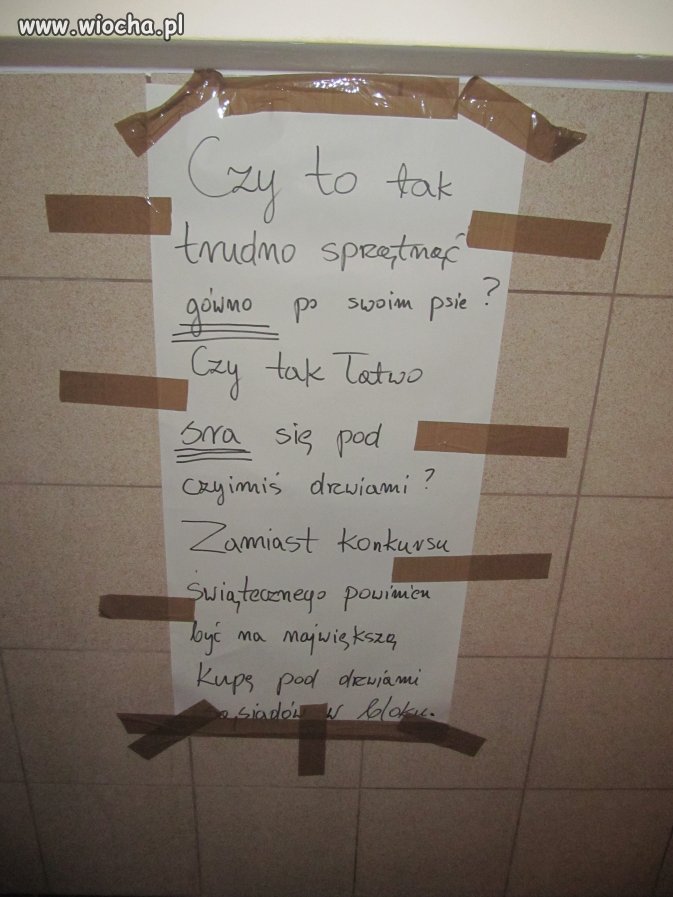 www.wiocha.pl
Czy to tak
trudno sprzątnąć
gówno po swoim psie?
Czy tak łatwo
sra się pod
czyimiś drzwiami?
Zamiast konkursu
świątecznego powinien
być na największą
kupę pod drzwiami
sąsiadów w bloku.